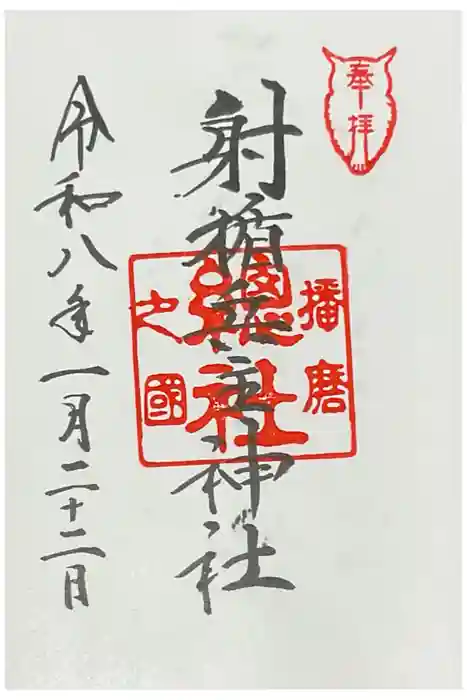 奉拝
射楯兵主神社
播磨
總社
之國
令和八年一月二十二日